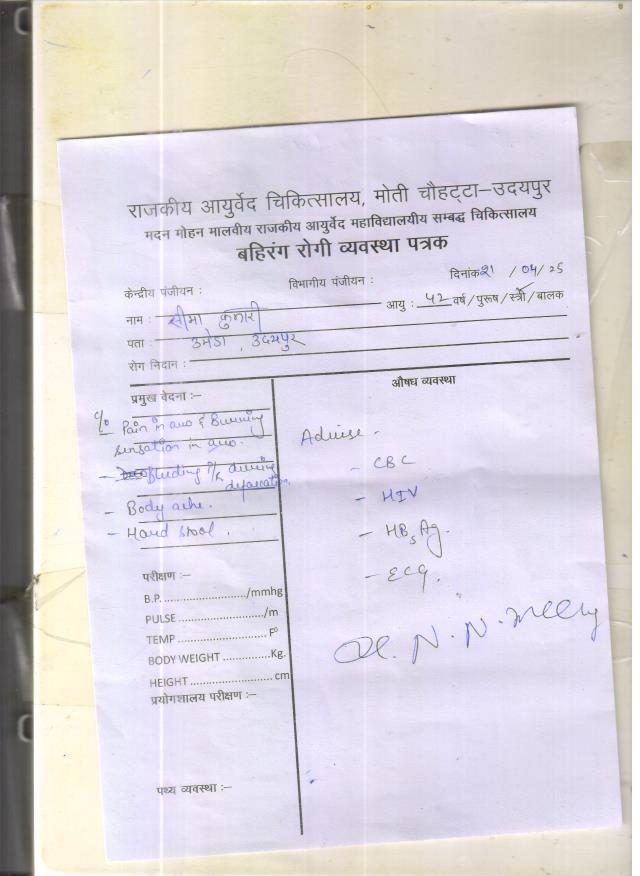 राजकीय आयुर्वेद चिकित्सालय, मोती चौहट्टा–उदयपुर
मदन मोहन मालवीय राजकीय आयुर्वेद महाविद्यालयीय सम्बद्ध चिकित्सालय
बहिरंग रोगी व्यवस्था पत्रक
केन्द्रीय पंजीयन : विभागीय पंजीयन : दिनांक 21 / 04 / 25
नाम : सीमा कुमारी आयु : 42 वर्ष / पुरूष / स्त्री / बालक
पता : उमेडा , उदयपुर
रोग निदान :
प्रमुख वेदना :–
c/o Pain in ano & Burning
sensation in ano.
– bleeding P/R during
defaecation
– Body ache.
– Hard stool .
परीक्षण :–
B.P. ..................../mmhg
PULSE ...................../m
TEMP ..................... F⁰
BODY WEIGHT ............Kg.
HEIGHT ........................ cm
प्रयोगशालय परीक्षण :–
पथ्य व्यवस्था :–
औषध व्यवस्था
Advise –
– CBC
– HIV
– HBsAg.
– ECG.
Dr. N. N.